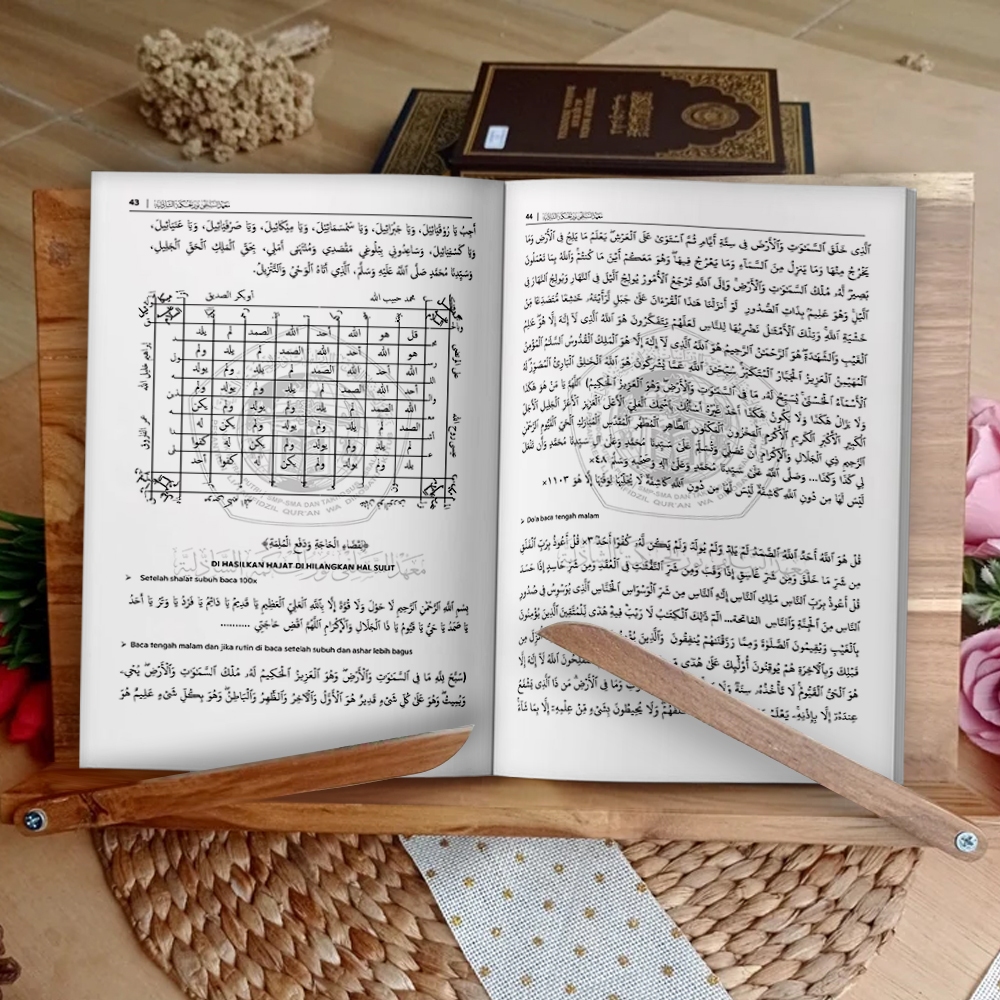 43
أَجِبْ يَا رُوْقِيَائِيلَ، وَيَا جَبْرَائِيلَ، وَيَا سَمْسَمَائِيلَ، وَيَا مِيْكَائِيلَ، وَيَا صَرْفِيَائِيلَ، وَيَا عَنْيَائِيلَ،
وَيَا كَسْفِيَائِيلَ، وَسَاعِدُونِي بِبُلُوغِي مَقْصَدِي وَمُنْتَهَى أَمَلِي، بِحَقِّ الْمَلِكِ الْحَقِّ الْجَلِيلِ،
وَسَيِّدِنَا مُحَمَّدٍ صَلَّى اللهُ عَلَيْهِ وَسَلَّمَ، الَّذِي أَتَاهُ الْوَحْيُ وَالتَّنْزِيلُ.
محمد حبيب الله أوبكر الصديق
قل هو الله أحد الله الصمد لم يلد
هو الله أحد الله الصمد لم يلد ولم
الله أحد الله الصمد لم يلد ولم يولد
أحد الله الصمد لم يلد ولم يولد ولم
الله الصمد لم يلد ولم يولد ولم يكن
الصمد لم يلد ولم يولد ولم يكن له
لم يلد ولم يولد ولم يكن له كفوا
يلد ولم يولد ولم يكن له كفوا أحد
﴿لِقَضَاءِ الْحَاجَةِ وَدَفْعِ الْمُلِمَّةِ﴾
DI HASILKAN HAJAT DI HILANGKAN HAL SULIT
➢ Setelah shalat subuh baca 100x
بِسْمِ اللهِ الرَّحْمٰنِ الرَّحِيمِ لَا حَوْلَ وَلَا قُوَّةَ إِلَّا بِاللهِ الْعَلِيِّ الْعَظِيمِ يَا قَدِيمُ يَا دَائِمُ يَا فَرْدُ يَا وِتْرُ يَا أَحَدُ
يَا صَمَدُ يَا حَيُّ يَا قَيُّومُ يَا ذَا الْجَلَالِ وَالْإِكْرَامِ اللَّهُمَّ اقْضِ حَاجَتِي ..........
➢ Baca tengah malam dan jika rutin di baca setelah subuh dan ashar lebih bagus
(سَبَّحَ لِلَّهِ مَا فِى السَّمٰوٰتِ وَالْأَرْضِ وَهُوَ الْعَزِيْزُ الْحَكِيْمُ لَهُ، مُلْكُ السَّمٰوٰتِ وَالْأَرْضِ يُحْيِۦ
وَيُمِيتُ وَهُوَ عَلَىٰ كُلِّ شَىْءٍ قَدِيرٌ هُوَ الْأَوَّلُ وَالْآخِرُ وَالظّٰهِرُ وَالْبَاطِنُ وَهُوَ بِكُلِّ شَىْءٍ عَلِيمٌ هُوَ
44
الَّذِى خَلَقَ السَّمٰوٰتِ وَالْأَرْضَ فِى سِتَّةِ أَيَّامٍ ثُمَّ اسْتَوَىٰ عَلَى الْعَرْشِ يَعْلَمُ مَا يَلِجُ فِى الْأَرْضِ وَمَا
يَخْرُجُ مِنْهَا وَمَا يَنزِلُ مِنَ السَّمَآءِ وَمَا يَعْرُجُ فِيهَا وَهُوَ مَعَكُمْ أَيْنَ مَا كُنتُمْ وَاللَّهُ بِمَا تَعْمَلُونَ
بَصِيرٌ لَهُ، مُلْكُ السَّمٰوٰتِ وَالْأَرْضِ وَإِلَى اللَّهِ تُرْجَعُ الْأُمُورُ يُولِجُ الَّيْلَ فِى النَّهَارِ وَيُولِجُ النَّهَارَ فِى
الَّيْلِ وَهُوَ عَلِيمٌ بِذَاتِ الصُّدُورِ لَوْ أَنزَلْنَا هٰذَا الْقُرْءَانَ عَلَىٰ جَبَلٍ لَّرَأَيْتَهُ، خٰشِعًا مُّتَصَدِّعًا مِّنْ
خَشْيَةِ اللَّهِ وَتِلْكَ الْأَمْثَالُ نَضْرِبُهَا لِلنَّاسِ لَعَلَّهُمْ يَتَفَكَّرُونَ هُوَ اللَّهُ الَّذِى لَآ إِلٰهَ إِلَّا هُوَ عٰلِمُ
الْغَيْبِ وَالشَّهٰدَةِ هُوَ الرَّحْمٰنُ الرَّحِيمُ هُوَ اللَّهُ الَّذِى لَآ إِلٰهَ إِلَّا هُوَ الْمَلِكُ الْقُدُّوسُ السَّلٰمُ الْمُؤْمِنُ
الْمُهَيْمِنُ الْعَزِيزُ الْجَبَّارُ الْمُتَكَبِّرُ سُبْحٰنَ اللَّهِ عَمَّا يُشْرِكُونَ هُوَ اللَّهُ الْخٰلِقُ الْبَارِئُ الْمُصَوِّرُ لَهُ
الْأَسْمَآءُ الْحُسْنَىٰ يُسَبِّحُ لَهُ، مَا فِى السَّمٰوٰتِ وَالْأَرْضِ وَهُوَ الْعَزِيزُ الْحَكِيمُ) اَللّٰهُمَّ يَا مَنْ هُوَ هٰكَذَا
وَلَا يَزَالُ هٰكَذَا وَلَا يَكُونُ هٰكَذَا أَحَدٌ غَيْرُهُ أَسْأَلُكَ بِاسْمِكَ الْعَلِيِّ الْأَعْلَى الْعَزِيزِ الْأَعَزِّ الْجَلِيلِ الْأَجَلِّ
الْكَبِيرِ الْأَكْبَرِ الْكَرِيمِ الْأَكْرَمِ الْمَخْزُونِ الْمَكْنُونِ الطَّاهِرِ الْمُطَهَّرِ الْمُقَدَّسِ الْمُبَارَكِ الْحَيِّ الْقَيُّومِ الرَّحْمٰنِ
الرَّحِيمِ ذِي الْجَلَالِ وَالْإِكْرَامِ أَنْ تُصَلِّيَ وَتُسَلِّمَ عَلَى سَيِّدِنَا مُحَمَّدٍ وَعَلَى آلِ سَيِّدِنَا مُحَمَّدٍ وَأَنْ تَفْعَلَ
لِي كَذَا وَكَذَا... وَصَلَّى اللهُ عَلَى سَيِّدِنَا مُحَمَّدٍ وَعَلَى آلِهِ وَصَحْبِهِ وَسَلَّمَ ٤٨×
لَيْسَ لَهَا مِن دُونِ اللَّهِ كَاشِفَةٌ لَيْسَ لَهَا مِن دُونِ اللَّهِ كَاشِفَةٌ لَا يُجَلِّيهَا لِوَقْتِهَا إِلَّا هُوَ ١١٠٣×
➢ Do'a baca tengah malam
قُلْ هُوَ اللَّهُ أَحَدٌ اللَّهُ الصَّمَدُ لَمْ يَلِدْ وَلَمْ يُولَدْ وَلَمْ يَكُن لَّهُ، كُفُوًا أَحَدٌ ٣× قُلْ أَعُوذُ بِرَبِّ الْفَلَقِ
مِن شَرِّ مَا خَلَقَ وَمِن شَرِّ غَاسِقٍ إِذَا وَقَبَ وَمِن شَرِّ النَّفّٰثٰتِ فِى الْعُقَدِ وَمِن شَرِّ حَاسِدٍ إِذَا حَسَدَ
قُلْ أَعُوذُ بِرَبِّ النَّاسِ مَلِكِ النَّاسِ إِلٰهِ النَّاسِ مِن شَرِّ الْوَسْوَاسِ الْخَنَّاسِ الَّذِى يُوَسْوِسُ فِى صُدُورِ
النَّاسِ مِنَ الْجِنَّةِ وَالنَّاسِ الفاتحة... الٓمٓ ذٰلِكَ الْكِتٰبُ لَا رَيْبَ فِيهِ هُدًى لِّلْمُتَّقِينَ الَّذِينَ يُؤْمِنُونَ
بِالْغَيْبِ وَيُقِيمُونَ الصَّلٰوةَ وَمِمَّا رَزَقْنٰهُمْ يُنفِقُونَ وَالَّذِينَ
قَبْلِكَ وَبِالْآخِرَةِ هُمْ يُوقِنُونَ أُولٰئِكَ عَلَىٰ هُدًى الْمُفْلِحُونَ اللَّهُ لَآ إِلٰهَ إِلَّا
هُوَ الْحَىُّ الْقَيُّومُ لَا تَأْخُذُهُ، سِنَةٌ وَلَا وَمَا فِى الْأَرْضِ مَن ذَا الَّذِى يَشْفَعُ
عِندَهُ إِلَّا بِإِذْنِهِۦ يَعْلَمُ خَلْفَهُمْ وَلَا يُحِيطُونَ بِشَىْءٍ مِّنْ عِلْمِهِۦ إِلَّا بِمَا شَآءَ